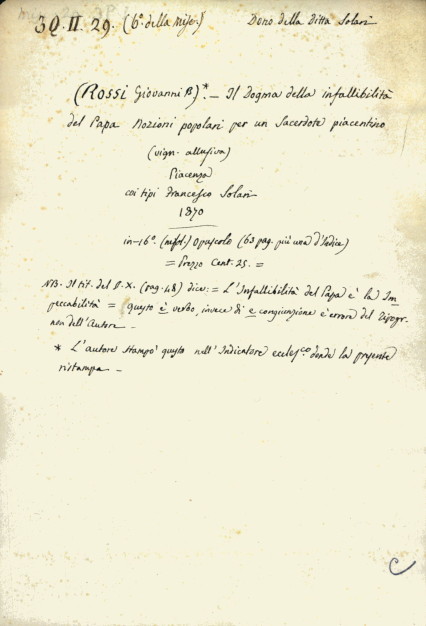 3Q. II. 29. (6º. della Misc.) Dono della Ditta Solari
(Rossi Giovanni B)*. — Il Dogma della infallibilità
del Papa Nozioni popolari per un Sacerdote piacentino
(vign. allusiva)
Piacenza
coi tipi Francesco Solari
1870
in-16º. (mfol.) Opuscolo (63 pag. più una d'Indice)
= Prezzo Cent. 25. =
NB. Il tit. del §. X. (pag. 48) dice: = L'Infallibilità del Papa è la Im
peccabilità = questo è verbo, invece di e congiunzione è errore del Tipogr.
non dell'Autore —
* L'autore stampò questo nell'Indicatore eccles.co donde la presente
ristampa —